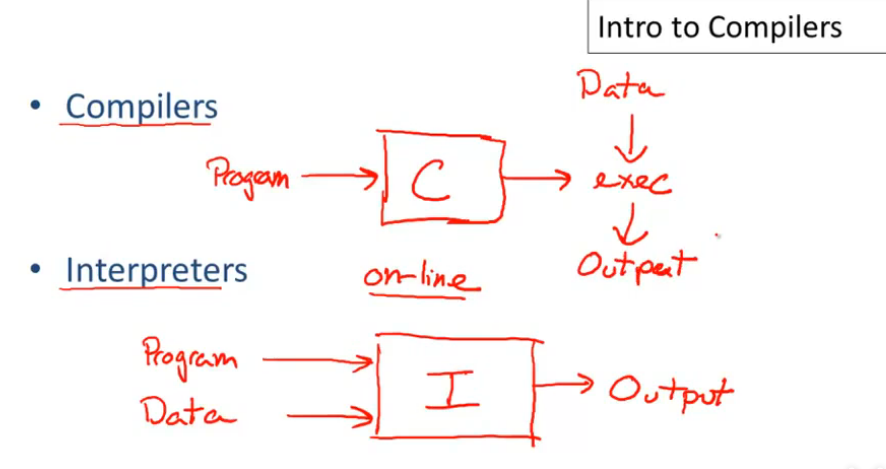 Intro to Compilers
• Compilers
Data
Program → C → exec
Output
• Interpreters
on-line
Program
I → Output
Data